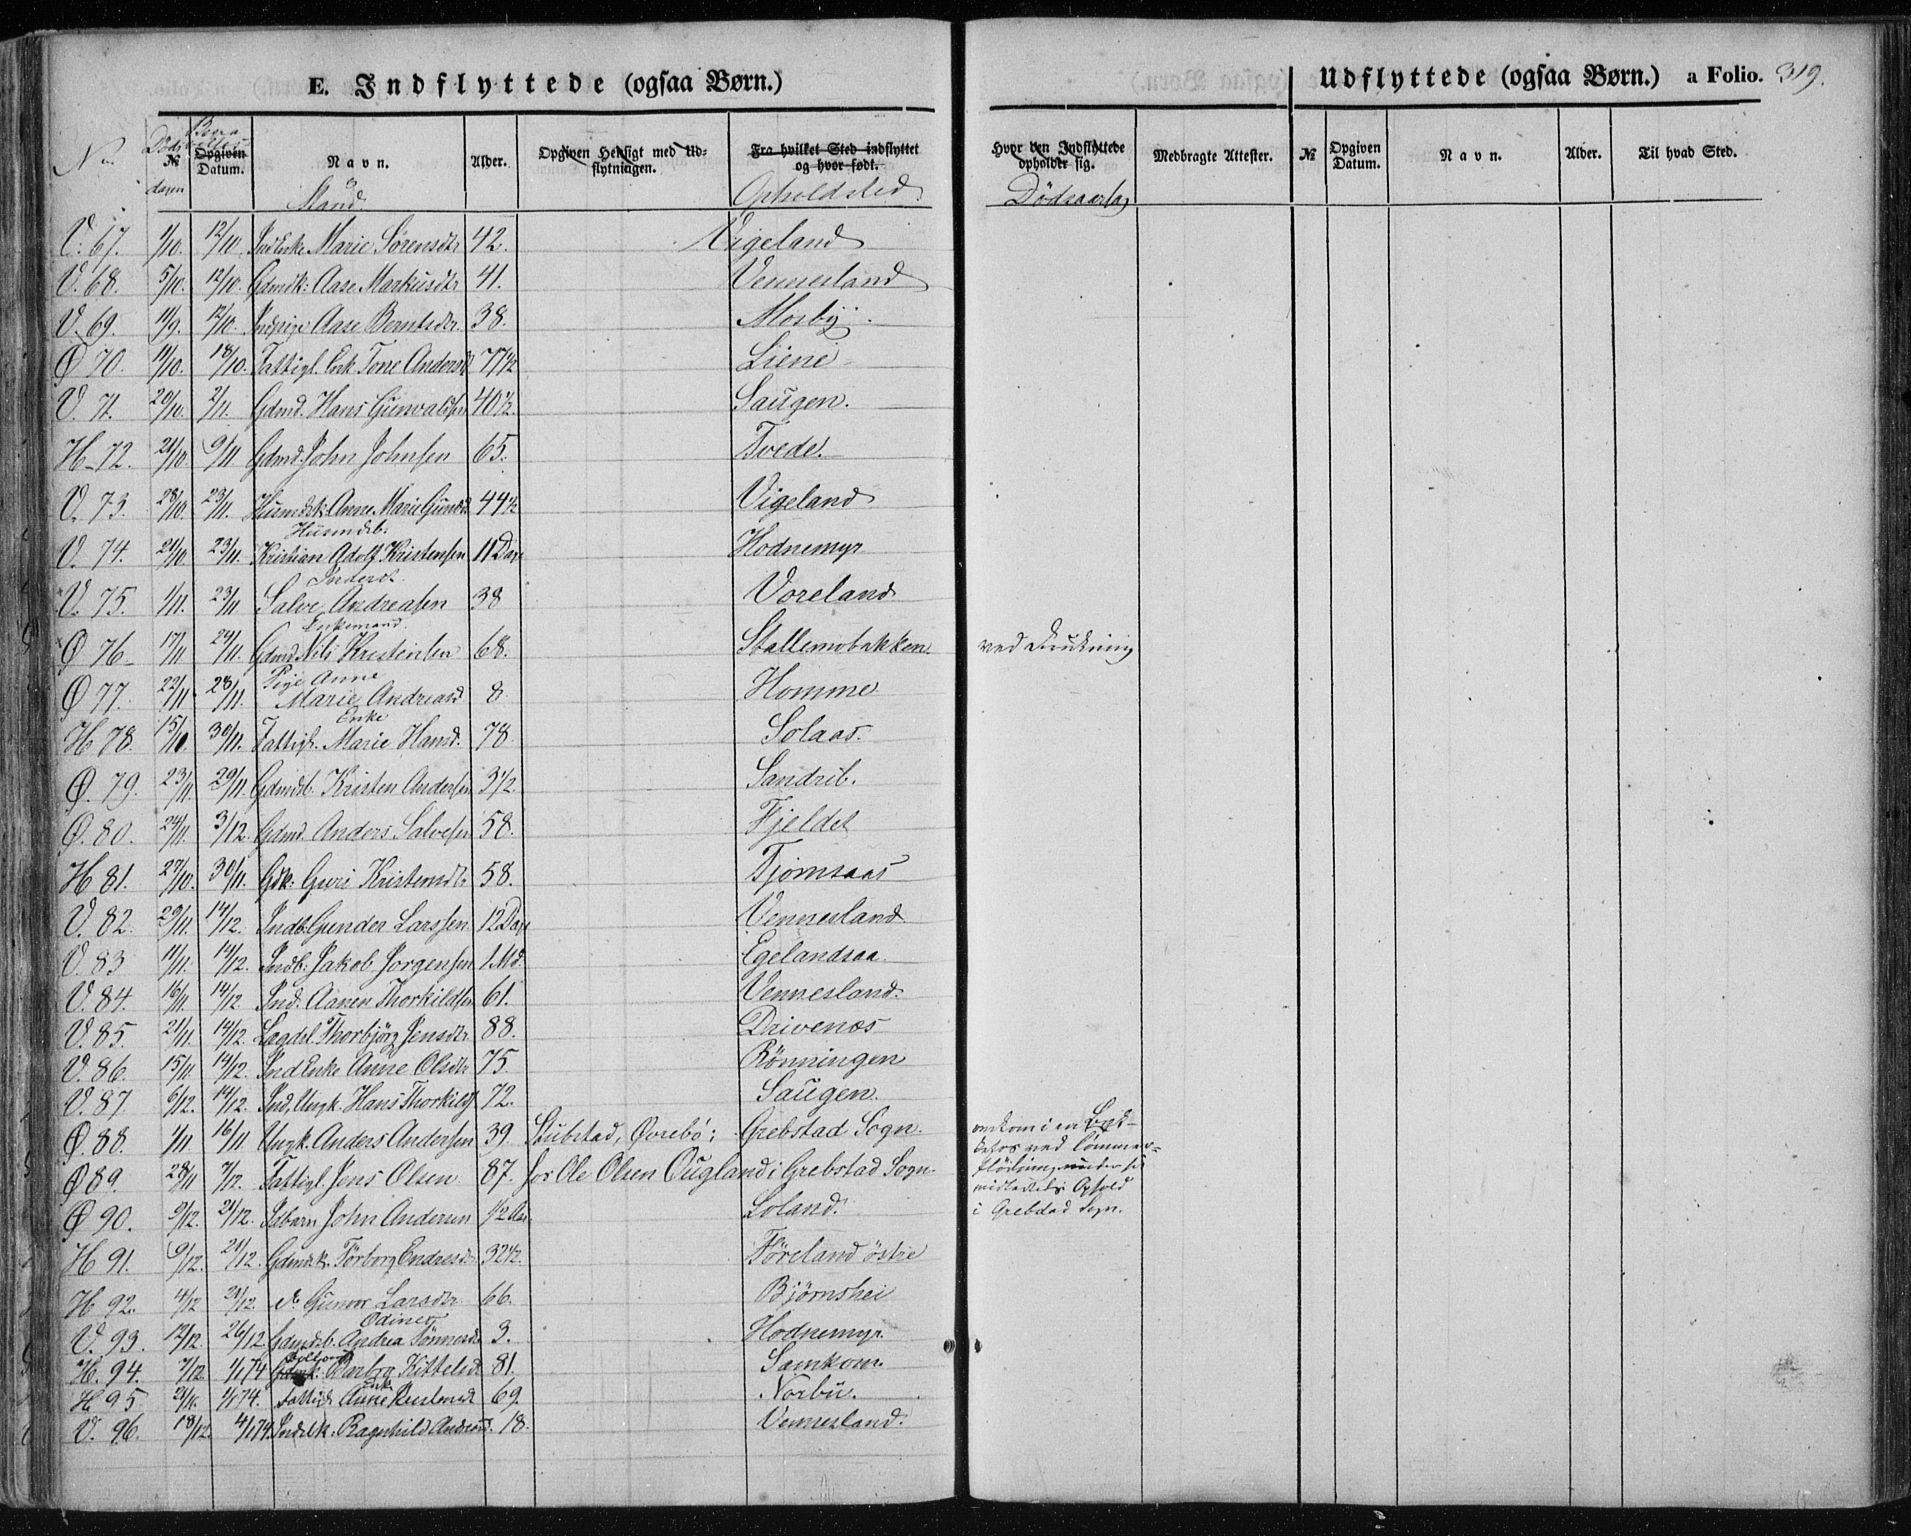 E. Indflyttede (ogsaa Børn.)
Udflyttede (ogsaa Børn.) a Folio. 319.
No Døds № dagen Opgiven Datum. Navn. Alder. Opgiven Hensigt med Udflytningen. Fra hvilket Sted indflyttet og hvor født. Hvor den Indflyttede opholder sig. Medbragte Attester. № Opgiven Datum. Navn. Alder. Til hvad Sted.
Stand Opholdsted Dødsaarsag
V. 67. 1/10. 12/10. Ind Enke Marie Sørensdtr 42. Vigeland
V. 68. 5/10. 12/10. Gdmdk: Aase Markusdtr 41. Vennesland
V. 69. 11/9. 12/10. Indpige Aase Berntsdtr. 38. Mosby
Ø 70. 11/10. 18/10. Fattigl. Enk Tone Andersd 77 1/2 Liene
V. 71. 20/10. 2/11. Gdmd. Hans Gunvaldsen 40 1/2. Saugen.
H 72. 21/10. 9/11 Gdmd. John Johnsen 65. Tvede.
V. 73. 28/10. 23/11. Husmdsk. Anne Marie Gunds 44 1/2 Vigeland
Husmdsb.
V. 74. 21/10. 23/11. Kristian Adolf Kristensen 11 Dage Hodnemyr
Inderst.
V. 75. 1/11. 23/11 Salve Andreasen 38 Voreland
Enkemand.
Ø 76 17/11 24/11. Gdmd Nils Kristensen 68. Stallemobakken. ved Drukning
Pige Anne
Ø 77. 22/11 28/11. Marie Andreasd 8. Homme
Enke
H 78. 15/10. 30/11. Fattigl. Marie Hansd. 78. Solaas.
Ø. 79. 23/11. 29/11. Gdmdsb. Kristen Andersen 3 1/2. Sandrib.
Ø. 80. 24/11. 3/12. Gdmd. Anders Salvesen 58. Fjeldet
H 81. 27/10. 30/11. Gdk: Guri Kristensdtr 58. Tjomsaas
V. 82. 29/11. 14/12. Indb. Gunder Larssen 12 Dage Vennesland
V. 83 11/11. 14/12. Indb: Jakob Jorgensen 1 Md. Egelandsaa
V. 84. 16/11. 14/12. Ind. Aanen Thorkildsen 61. Vennesland.
V. 85. 21/11. 14/12. Lægdsl. Thorbjørg Jensdtr. 88. Drivenes
V. 86. 15/11. 14/12. Ind Enke Anne Olsdtr 75. Rönningen
V. 87. 6/12. 14/12. Ind, Ungk. Hans Thorkilds 72. Saugen.
Ø. 88. 1/11 16/11 Ungk. Anders Andersen 39. Stubstad, Øvrebø; Grebstad Sogn. omkom i en
Ø 89. 28/11 7/12. Fattigl. Jens Olsen 87. hos Ole Olsen Ougland i Grebstad Sogn. ved Tømmerflødning, under sit midlertids Ophold i Grebstad Sogn.
Ø 90. 9/12. 21/12. John Andersen 1/2 Aar. Loland.
H 91. 9/12. 21/12. Gdmdsk. Törborg Endresdr. 32 1/2. Föreland östre
H 92. 4/12 21/12. Gunvor Larsdtr. 66. Bjørnshei
Odinea
V. 93. 12/12. 26/12. Gdmdsb. Andrea Tönnesd. 3. Hodnemyr.
H. 94. 7/12 1/1 74 Barbrg Kittelsd 81. Samkom.
Enk
H 95 21/11. 1/1 74. Fattigl. Anne 69. Norbü.
V. 96. 18/12. 4/1 74. Ragnhild Andreasd. 18. Vennesland.